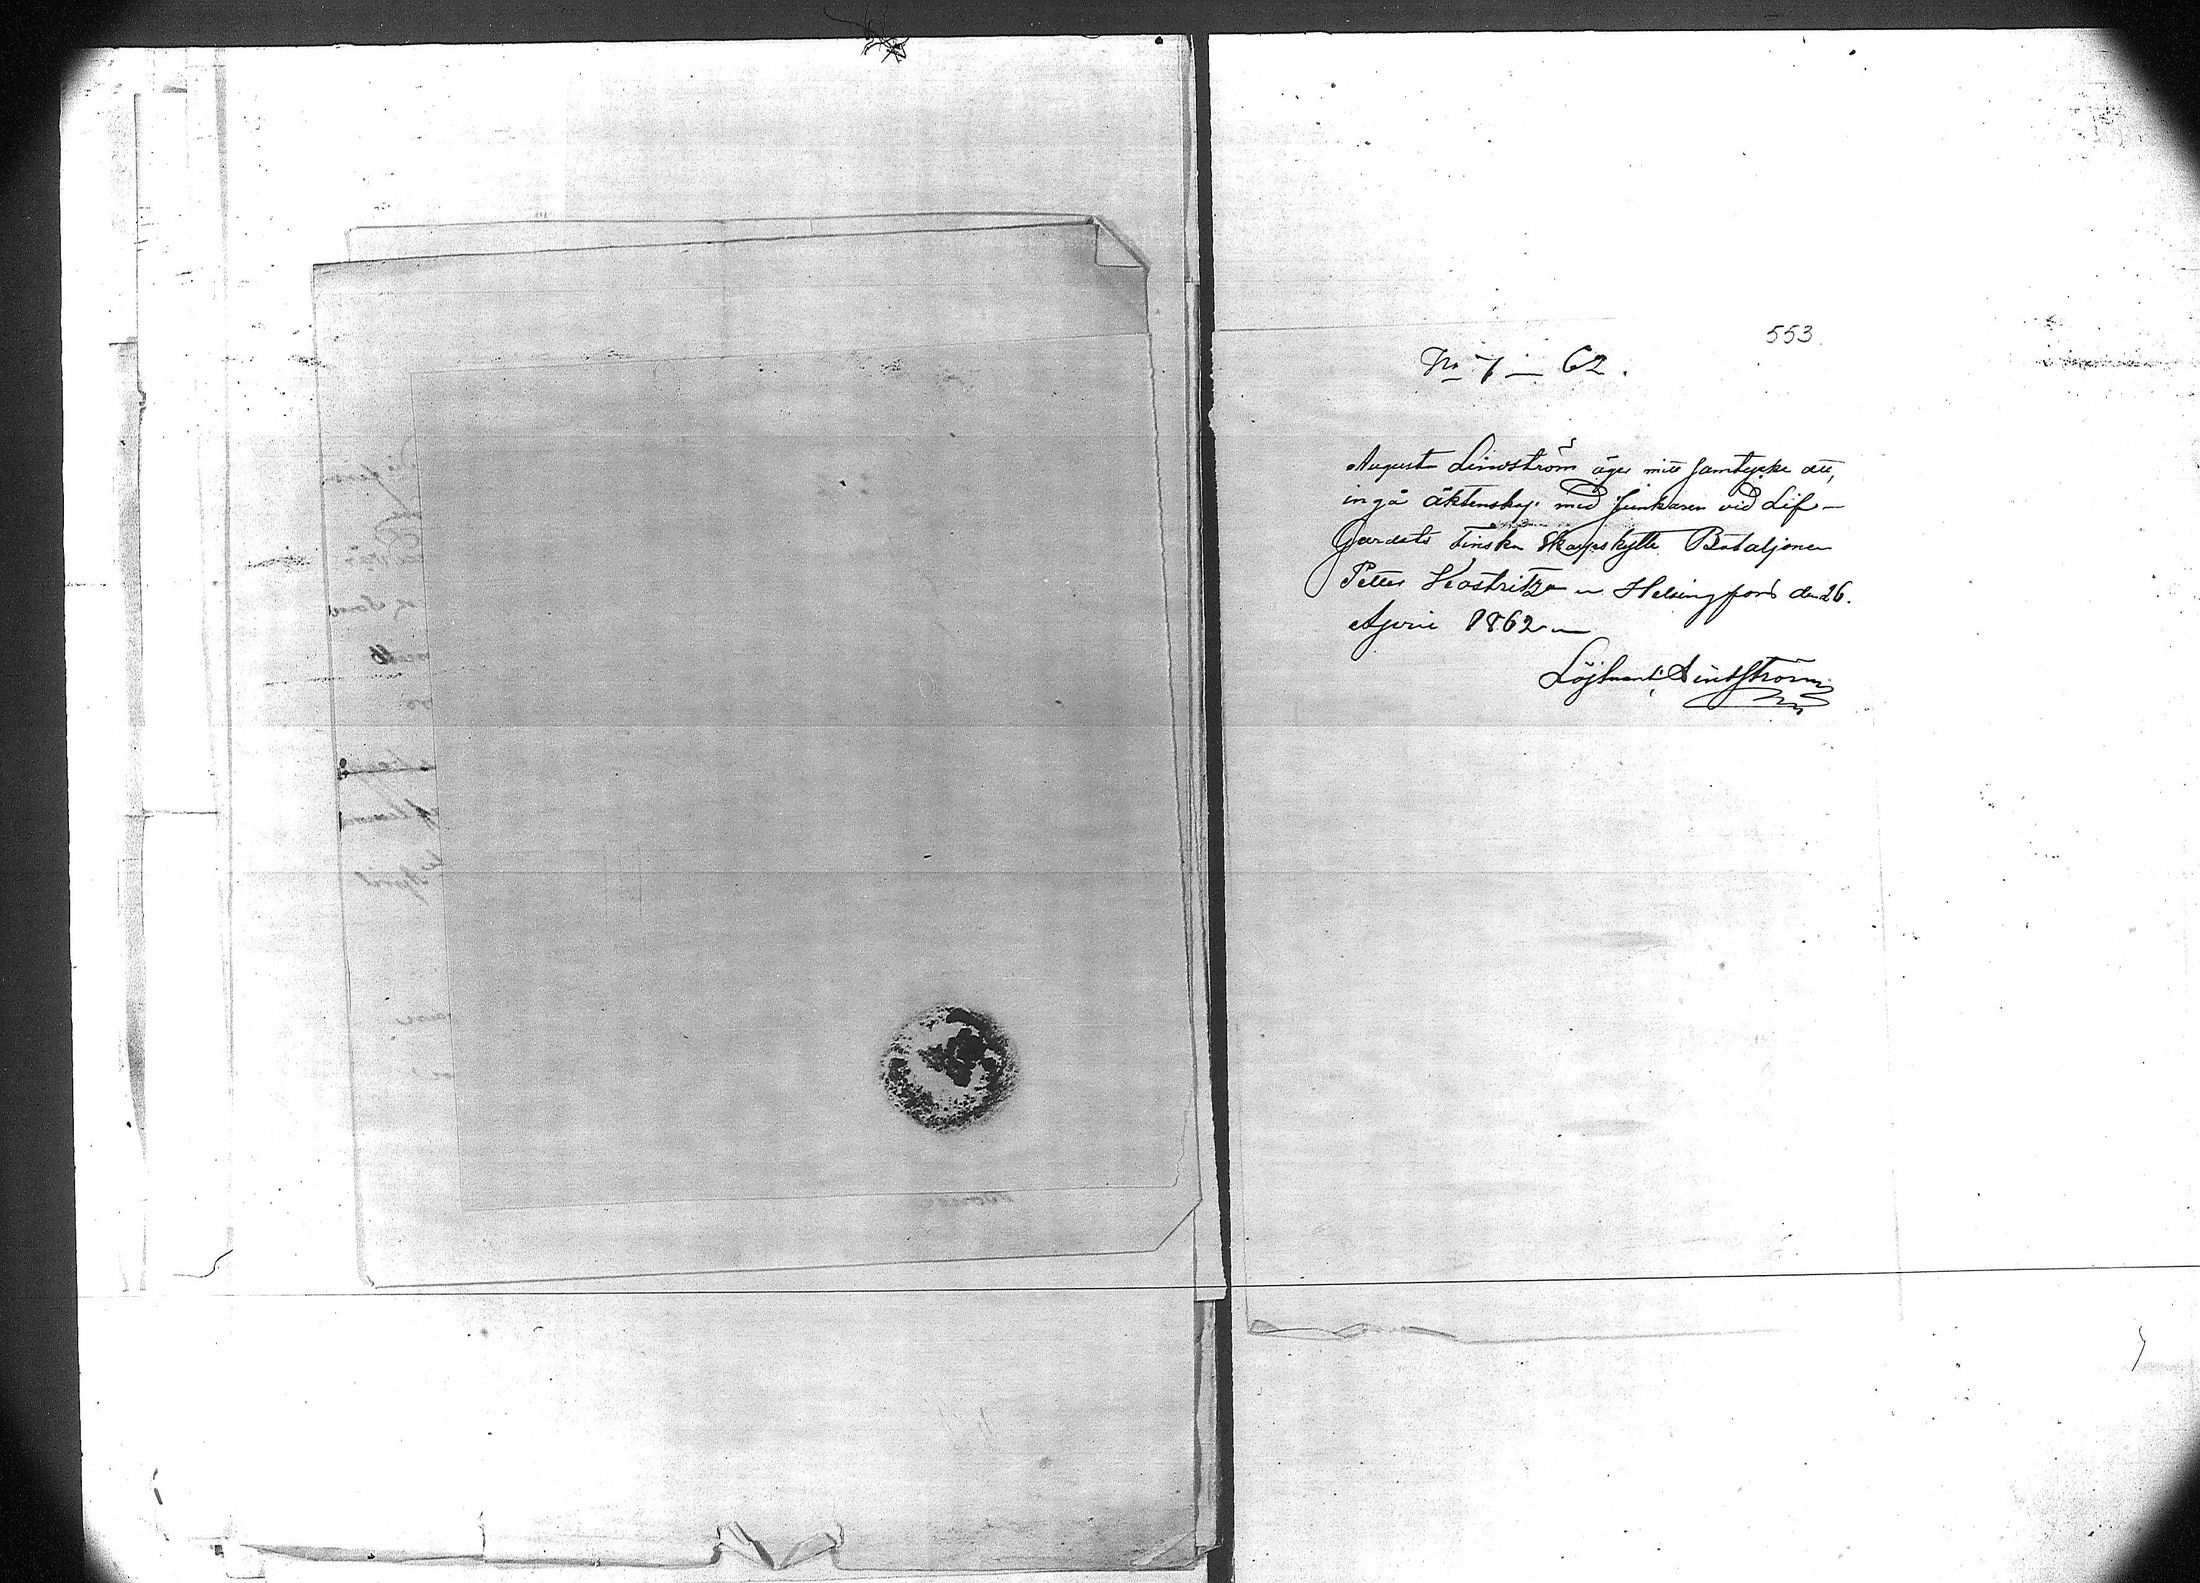 553
No 7 — 62.
Augusta Lindström äger mitt samtycke att,
ingå äktenskap med Junkaren vid Lif-
Gardets Finska Skarpskytte Bataljonen
Petter Kostritza — Helsingfors den 26.
April 1862 —
Löjtnant Lindström